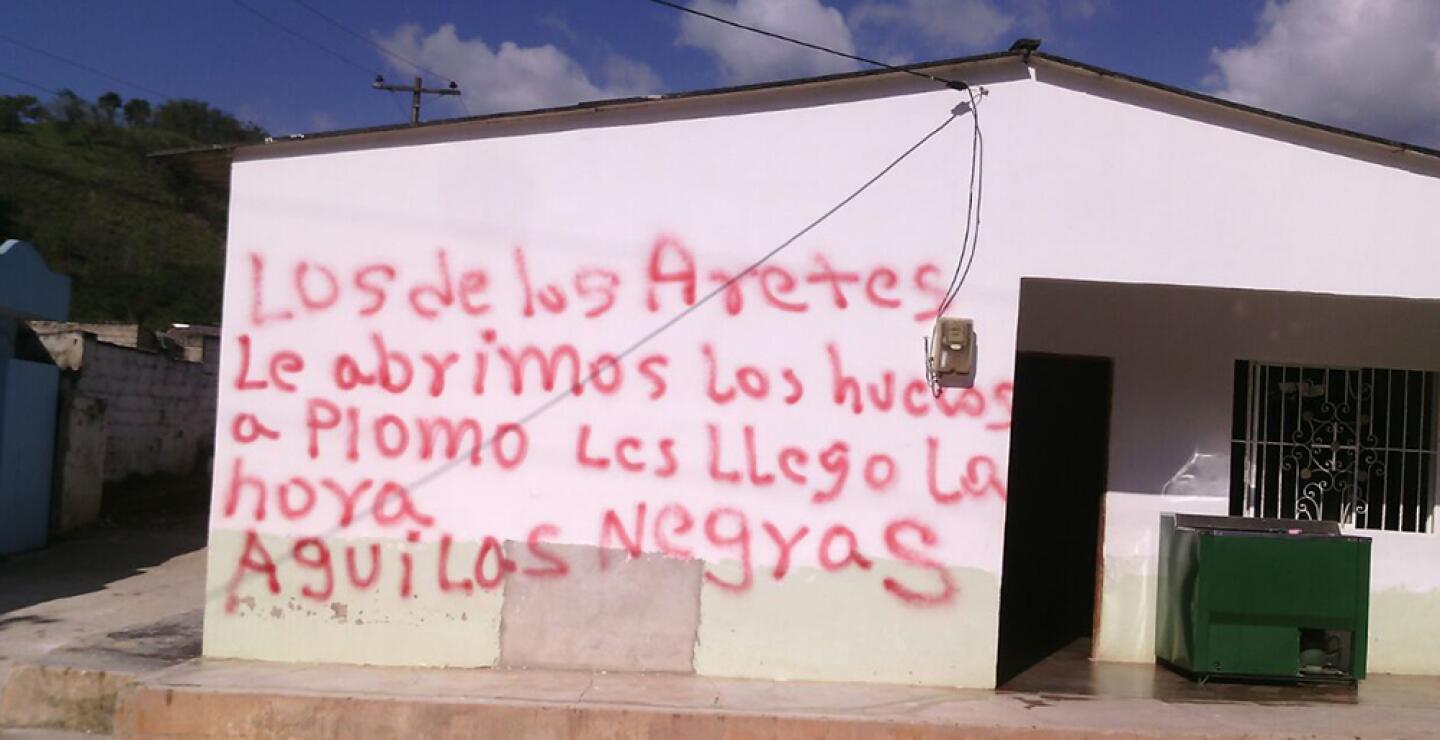 Los de los Aretes
Le abrimos los huecos
a Plomo Les LLego La
hora
Aguilas Negras